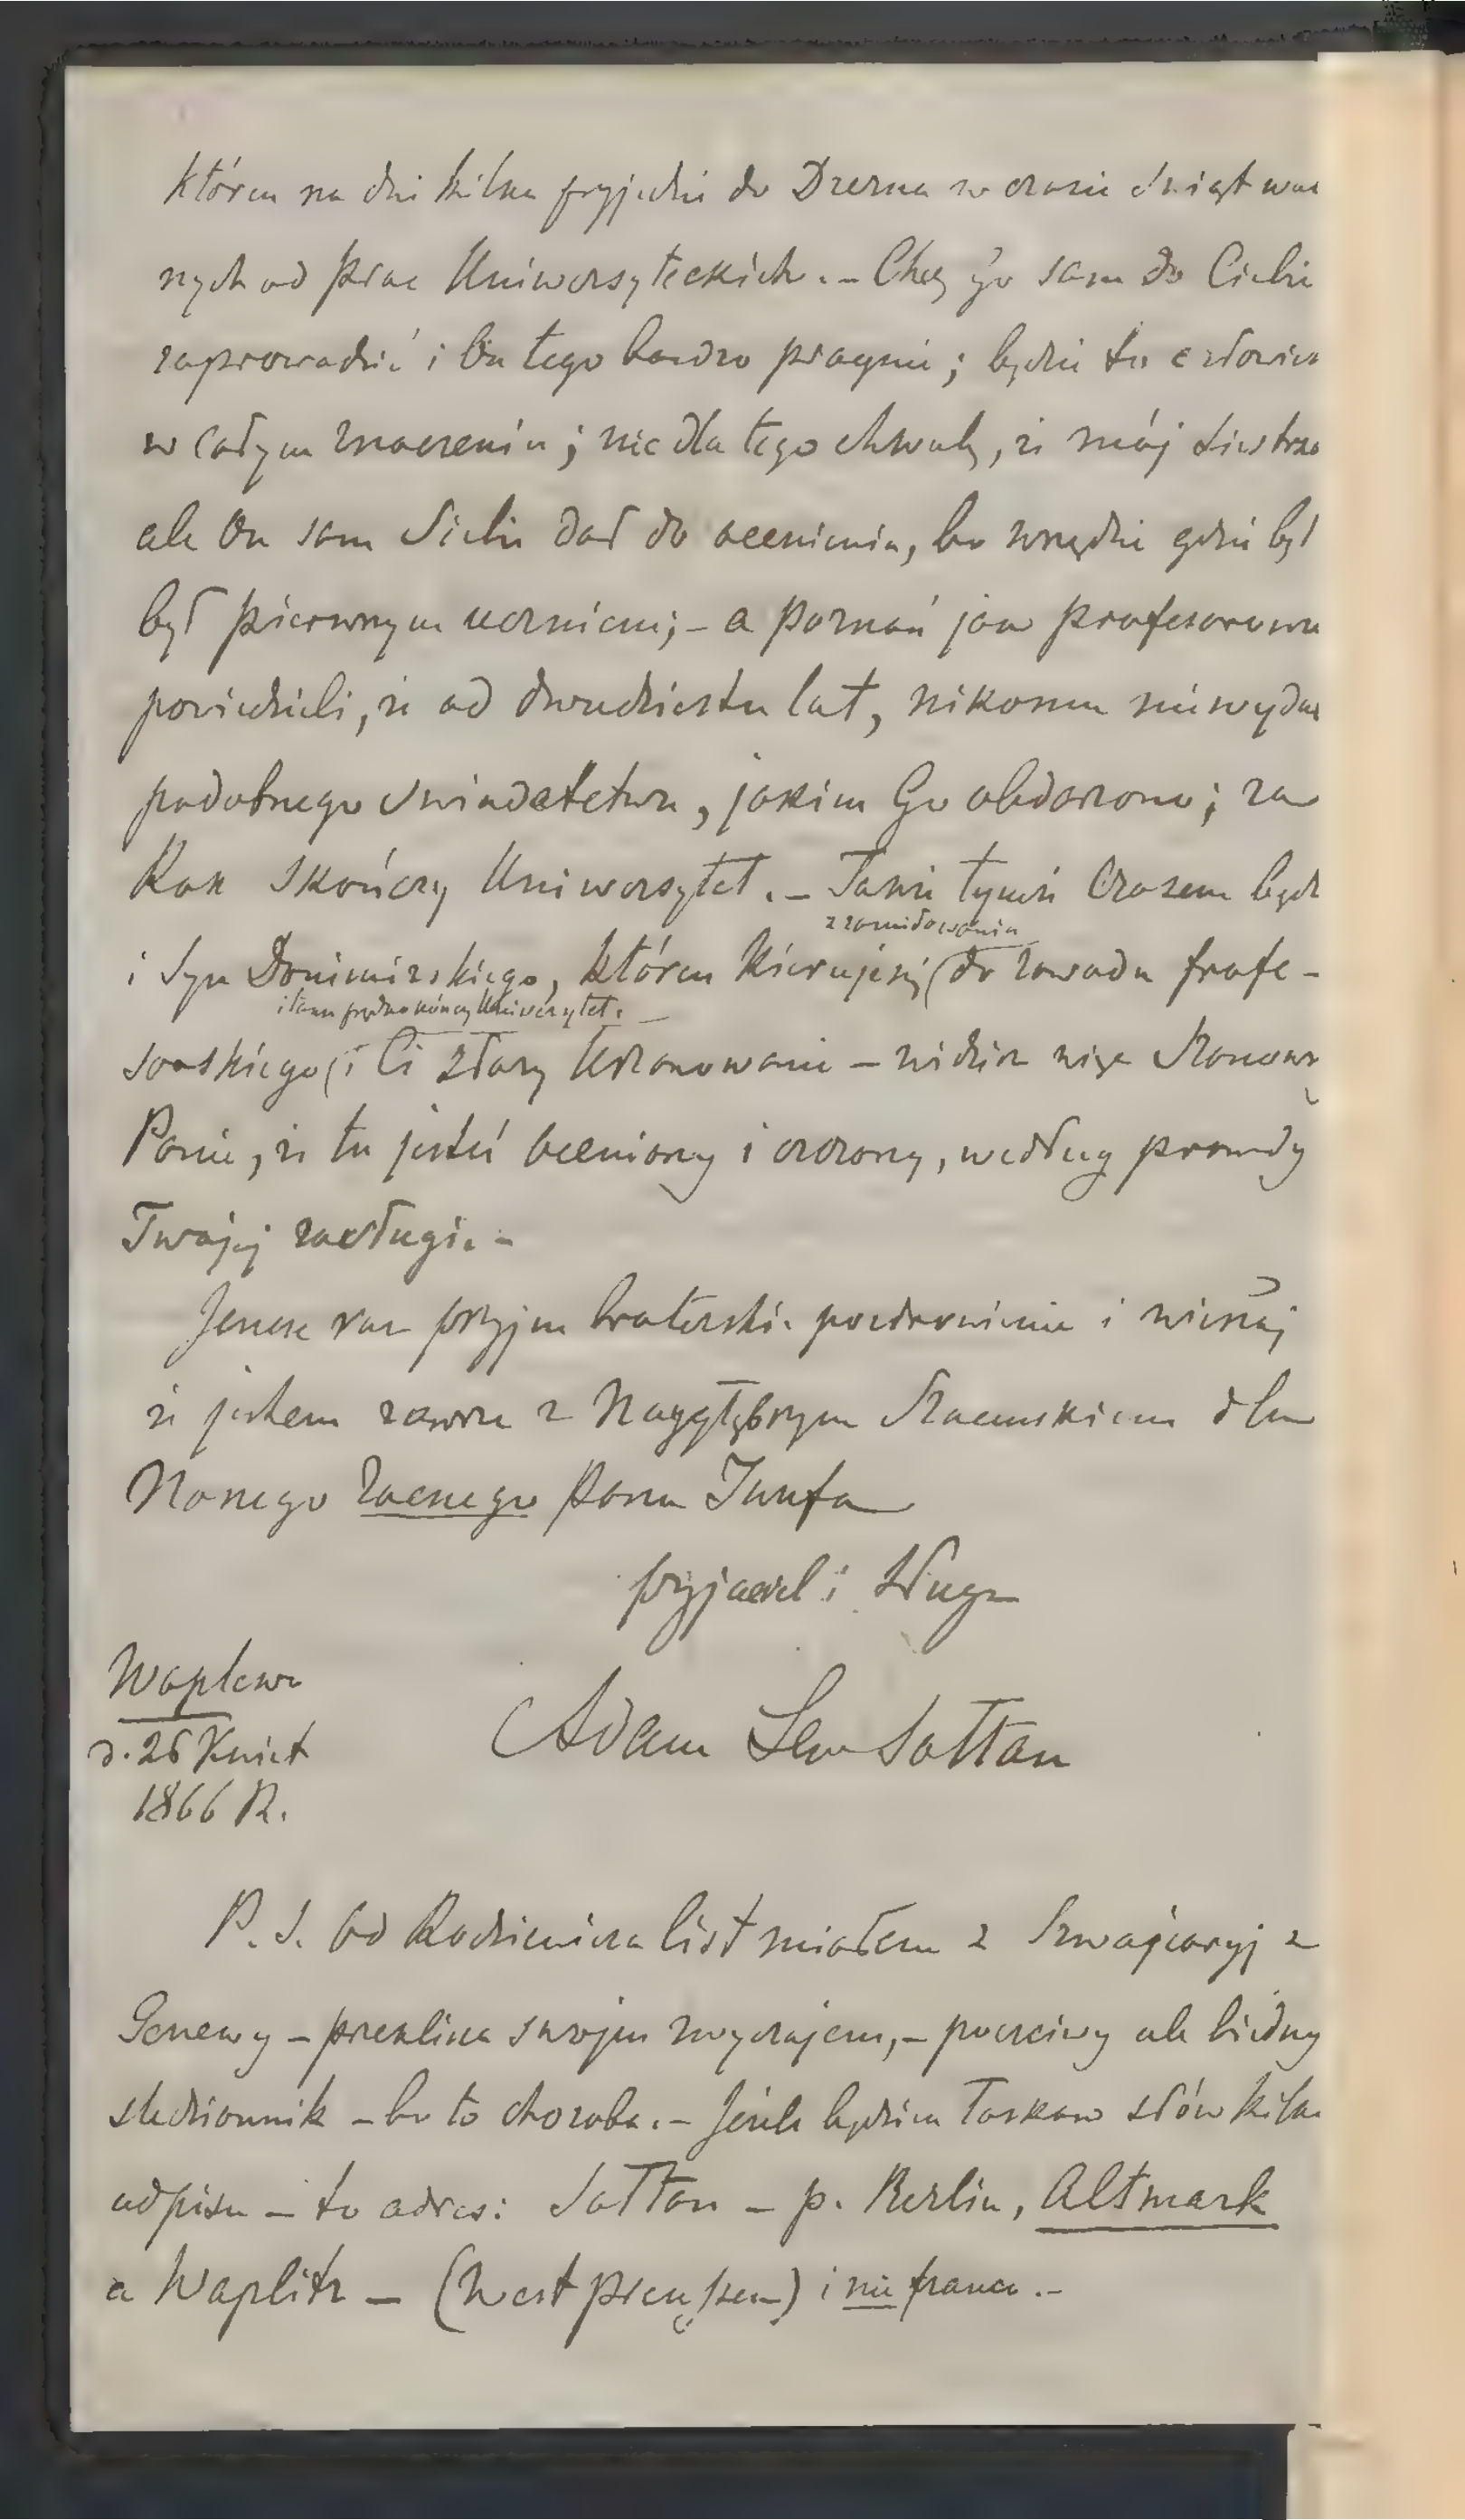 którzy na dni kilka przyjedzie do Drezna w czasie Świąt wol
nych od prac Uniwersyteckich. – Chcę Go sam do Ciebie
zaprowadzić i On tego bardzo pragnie; będzie to człowiek
w całym znaczeniu; nie dla tego chwalę, że mój Siostrze
ale On sam Siebie dał do ocenienia, bo wszędzie gdzie był
był pierwszym uczniem; – a Poznań jaw profesorowie
powiedzieli, że od dwudziestu lat, nikomu nie wydan
podobnego Swiadectwa, jakim Go obdarzono; za
Rok Skończy Uniwersytet. – Tamże tymże Czasem będz
z zamiłowania
i Syn Donimirskiego, który Kieruje się (do zawodu profe-
i tamu prędko kończy Uniwersytet. –
sorskiego (i Ci złoży Uszanowanie – widzisz więc Szanowny
Panie, że tu jesteś oceniony i czczony, według prawdy
Twojej zasługi. –
Jeszcze raz przyjm braterskie pozdrowienie i wierzaj
że jestem zawsze z Najgłębszym Szacunkiem dla
Naszego Zacnego Pana Józefa
przyjaciel i Sługa
Waplewo
d. 26 Kwiet
1866 R.
Adam Lew Sołtan
P. S. Od Rodziewicza list miałem z Szwajcaryj z
Genewy – przeklina swojem zwyczajem, – poczciwy ale biedny
śledziennik – bo to choroba. – Jeśli będziesz łaskaw słów kilka
odpisu – to adres: Sołtan – p. Berlin, Altmark
a Waplitz – (West preußen) i nie franco. –